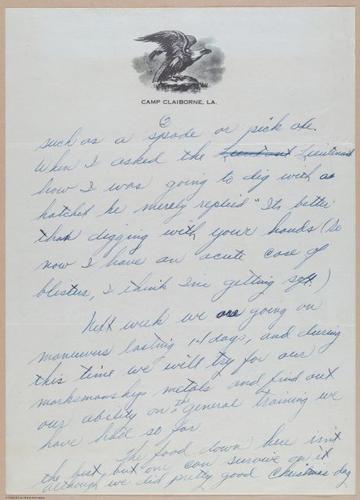 CAMP CLAIBORNE, LA.
such as a spade or pick etc.
When I asked the Lieutenant
how I was going to dig with a
hatchet he merely replied "Its better
than digging with your hands (So
now I have an acute case of
blisters, I think I'm getting soft)
Next week we are going on
maneuvers lasting 14 days, and during
this time we will try for our
marksmanship metals and find out
our ability on the general training we
have had so far.
The food down here isn't
the best but one can survive on it
although we did pretty good Christmas day